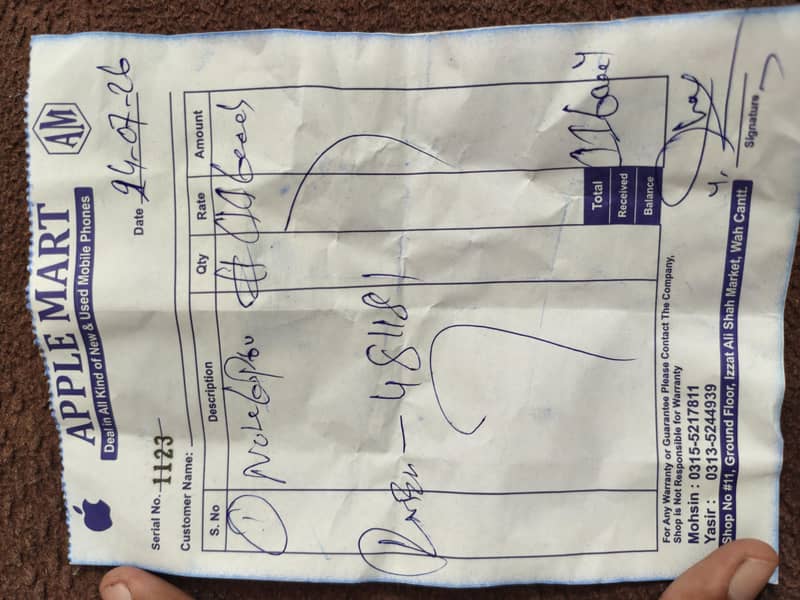 APPLE MART
AM
Deal in All Kind of New & Used Mobile Phones
Serial No. 1123
Date 24-07-26
Customer Name:
S. No Description Qty Rate Amount
1
48118
Total
Received
Balance
For Any Warranty or Guarantee Please Contact The Company,
Shop is Not Responsible for Warranty
Mohsin : 0315-5217811
Yasir : 0313-5244939
Signature
Shop No #11, Ground Floor, Izzat Ali Shah Market, Wah Cantt.